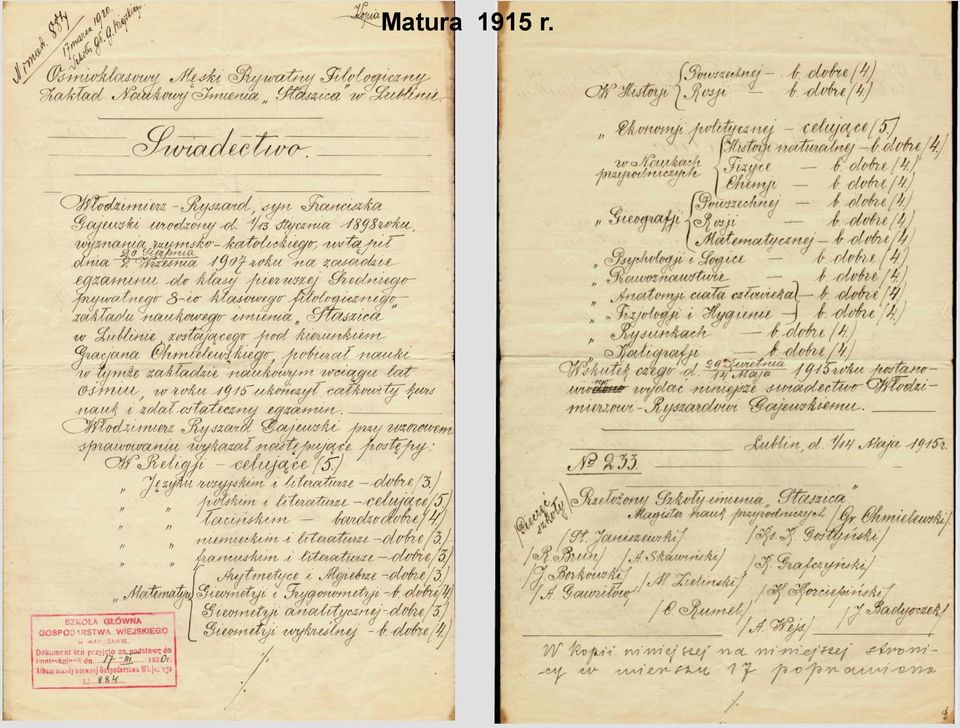 Matura 1915 r.
Kopia
N imat. 884
17 marca 1920.
Ośmioklasowy Męski Prywatny Filologiczny
Zakład Naukowy Imienia „Staszica" w Lublinie
Świadectwo.
Włodzimierz-Ryszard, syn Franciszka
Gajewski urodzony d. 1/13 Stycznia 1898 roku,
wyznania rzymsko-katolickiego, wstąpił
dnia 20 Sierpnia / 2 Września 1907 roku na zasadzie
egzaminu do klasy pierwszej Średniego
prywatnego 8-io klasowego filologicznego
zakładu naukowego imienia „Staszica"
w Lublinie, zostającego pod kierunkiem
Gracjana Chmielewskiego, pobierał nauki
w tymże zakładzie naukowym wciągu lat
ośmiu, w roku 1915 ukończył całkowity kurs
nauk i zdał ostateczny egzamin.
Włodzimierz Ryszard Gajewski przy wzorowem
sprawowaniu wykazał następujące postępy:
W Religji - celujące (5.)
„ Języku rosyjskim i literaturze - dobre (3.)
„ „ polskim i literaturze - celujące (5)
„ „ łacińskim - bardzo dobre (4)
„ „ niemieckim i literaturze - dobre (3.)
„ „ francuskim i literaturze - dobre (3.)
„ Matematyce
Arytmetyce i Algiebrze - dobre (3.)
Gieometrji i Trygonometryi - b. dobre (4)
Gieometrji analitycznej - dobre (3.)
Gieometrji wykreślnej - b. dobre (4.)
SZKOŁA GŁÓWNA
GOSPODARSTWA WIEJSKIEGO
w WARSZAWIE.
Dokument ten przyjęto za podstawę do
Imatrykulacji dn. 17-III 1920 r.
L: 884
W Historji
Powszechnej - b. dobre (4.)
Rosji - b. dobre (4.)
„ Ekonomji politycznej - celujące (5.)
w Naukach przyrodniczych
Historji naturalnej - b. dobre (4)
Fizyce - b. dobre (4.)
Chemji - b. dobre (4)
„ Gieografji
Powszechnej - b. dobre (4)
Rosji - b. dobre (4)
Matematycznej - b. dobre (4)
„ Psychologji i Logice - b. dobre (4)
„ Prawoznawstwie - b. dobre (4)
„ Anatomji ciała człowieka - b. dobre (4)
„ Fizjologji i Hygienie - b. dobre (4)
„ Rysunkach - b. dobre (4)
„ Kaligrafji - b. dobre (4)
Wskutek czego d. 29 Kwietnia / 14 Maja 1915 roku postano-
wiono wydać niniejsze świadectwo Włodzi-
mierzowi-Ryszardowi Gajewskiemu.
Lublin, d. 1/14 Maja 1915 r.
№ 233.
/Pieczęć szkoły/
Przełożony Szkoły imienia „Staszica"
Magister nauk przyrodniczych /Gr. Chmielewski/
/St. Janiszewski/ /Ks. K. Gostyński/
/R. Brun/ /A. Skawiński/ /K. Grafczyński/
/J. Borkowski/ /M. Zieliński/
/A. Gawriłow/ /K. Korciepiński/
/O. Rumel/ /J. Badyoczek/
/A. Weja/
W kopii niniejszej na niniejszej stroni-
cy w wierszu 17 poprawiono